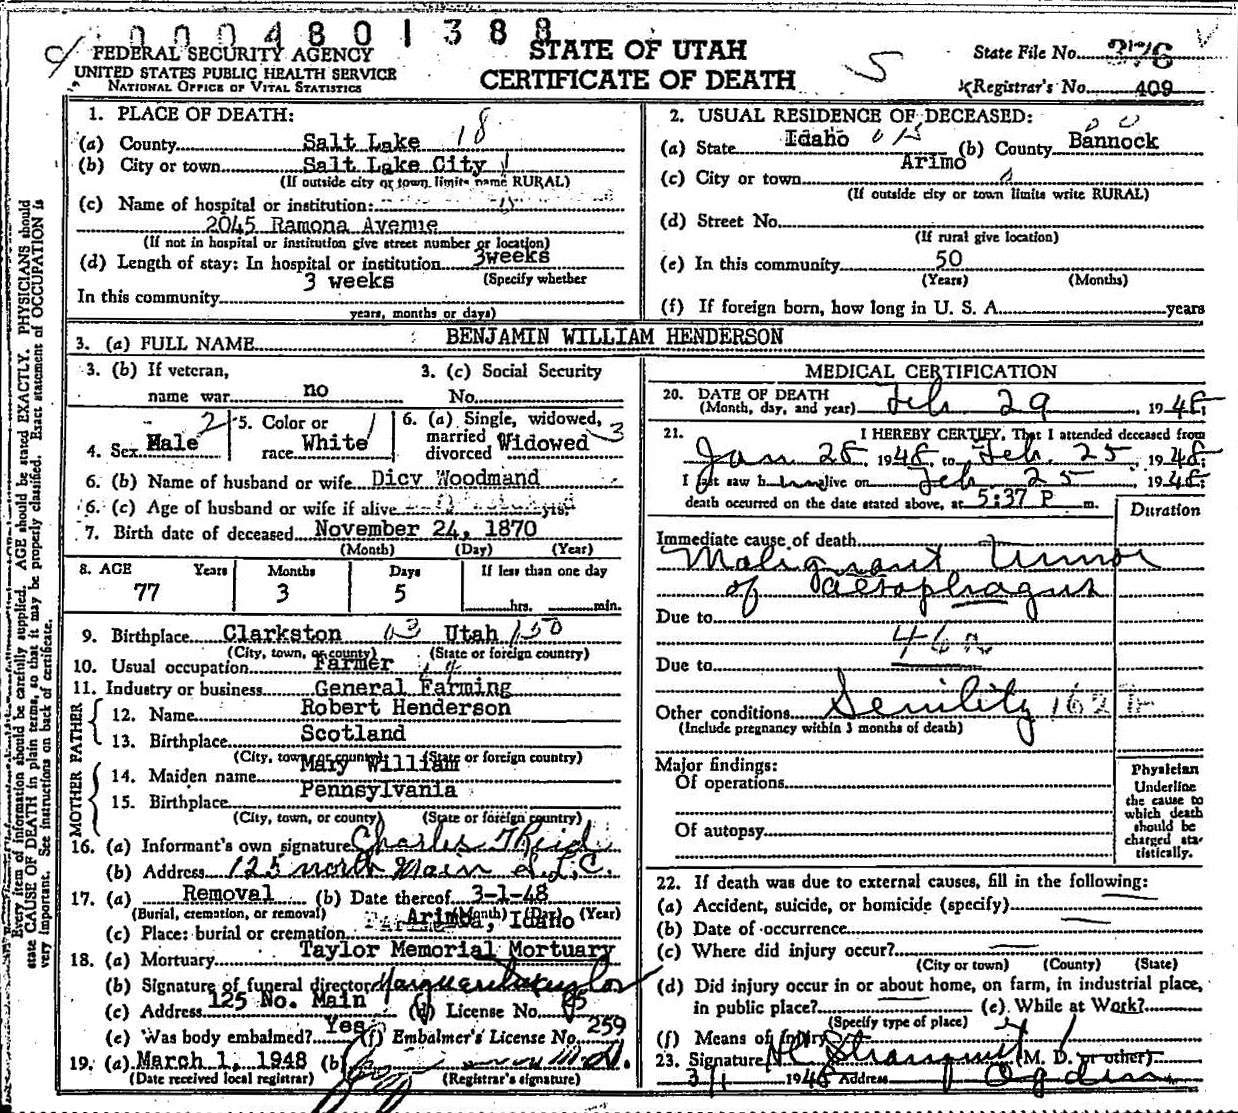 0004801388
FEDERAL SECURITY AGENCY
UNITED STATES PUBLIC HEALTH SERVICE
NATIONAL OFFICE OF VITAL STATISTICS
STATE OF UTAH
CERTIFICATE OF DEATH
5
State File No. 376
Registrar's No. 409
Every item of information should be carefully supplied. AGE should be stated EXACTLY. PHYSICIANS should
state CAUSE OF DEATH in plain terms, so that it may be properly classified. Exact statement of OCCUPATION is
very important. See instructions on back of certificate.
1. PLACE OF DEATH:
(a) County Salt Lake 18
(b) City or town Salt Lake City 1
(If outside city or town limits name RURAL)
(c) Name of hospital or institution:
2045 Ramona Avenue
(If not in hospital or institution give street number or location)
(d) Length of stay: In hospital or institution 3weeks
3 weeks (Specify whether
In this community
years, months or days)
2. USUAL RESIDENCE OF DECEASED:
(a) State Idaho (b) County Bannock
(c) City or town Arimo
(If outside city or town limits write RURAL)
(d) Street No.
(If rural give location)
(e) In this community 50
(Years) (Months)
(f) If foreign born, how long in U. S. A. years
3. (a) FULL NAME BENJAMIN WILLIAM HENDERSON
3. (b) If veteran, name war no
3. (c) Social Security No.
4. Sex Male 2
5. Color or race White 1
6. (a) Single, widowed, married divorced Widowed 3
6. (b) Name of husband or wife Dicy Woodmand
6. (c) Age of husband or wife if alive yrs.
7. Birth date of deceased November 24, 1870
(Month) (Day) (Year)
8. AGE Years Months Days If less than one day
77 3 5 hrs. min.
9. Birthplace Clarkston Utah
(City, town, or county) (State or foreign country)
10. Usual occupation Farmer
11. Industry or business General Farming
FATHER
12. Name Robert Henderson
13. Birthplace Scotland
(City, town or county) (State or foreign country)
MOTHER
14. Maiden name Mary William
15. Birthplace Pennsylvania
(City, town, or county) (State or foreign country)
16. (a) Informant's own signature Charles T Reid
(b) Address 125 north Main S.L.C.
17. (a) Removal (b) Date thereof 3-1-48
(Burial, cremation, or removal) (Month) (Day) (Year)
(c) Place: burial or cremation Arimo, Idaho
18. (a) Mortuary Taylor Memorial Mortuary
(b) Signature of funeral director
(c) Address 125 No. Main (d) License No. 85
(e) Was body embalmed? Yes (f) Embalmer's License No. 259
19. (a) March 1, 1948 (b) M.D.
(Date received local registrar) (Registrar's signature)
MEDICAL CERTIFICATION
20. DATE OF DEATH
(Month, day, and year) Feb 29, 1948
21. I HEREBY CERTIFY, That I attended deceased from
Jan 28, 1948, to Feb. 25, 1948;
I last saw him alive on Feb 25, 1948;
death occurred on the date stated above, at 5:37 P m.
Duration
Immediate cause of death
Malignant Tumor
of aesophagus
Due to
46a
Due to
Other conditions Senility 162
(Include pregnancy within 3 months of death)
Major findings:
Of operations
Of autopsy
Physician
Underline
the cause to
which death
should be
charged sta-
tistically.
22. If death was due to external causes, fill in the following:
(a) Accident, suicide, or homicide (specify)
(b) Date of occurrence
(c) Where did injury occur?
(City or town) (County) (State)
(d) Did injury occur in or about home, on farm, in industrial place,
in public place? (e) While at Work?
(Specify type of place)
(f) Means of injury
23. Signature (M. D. or other)
3/1 1948 Address Ogden